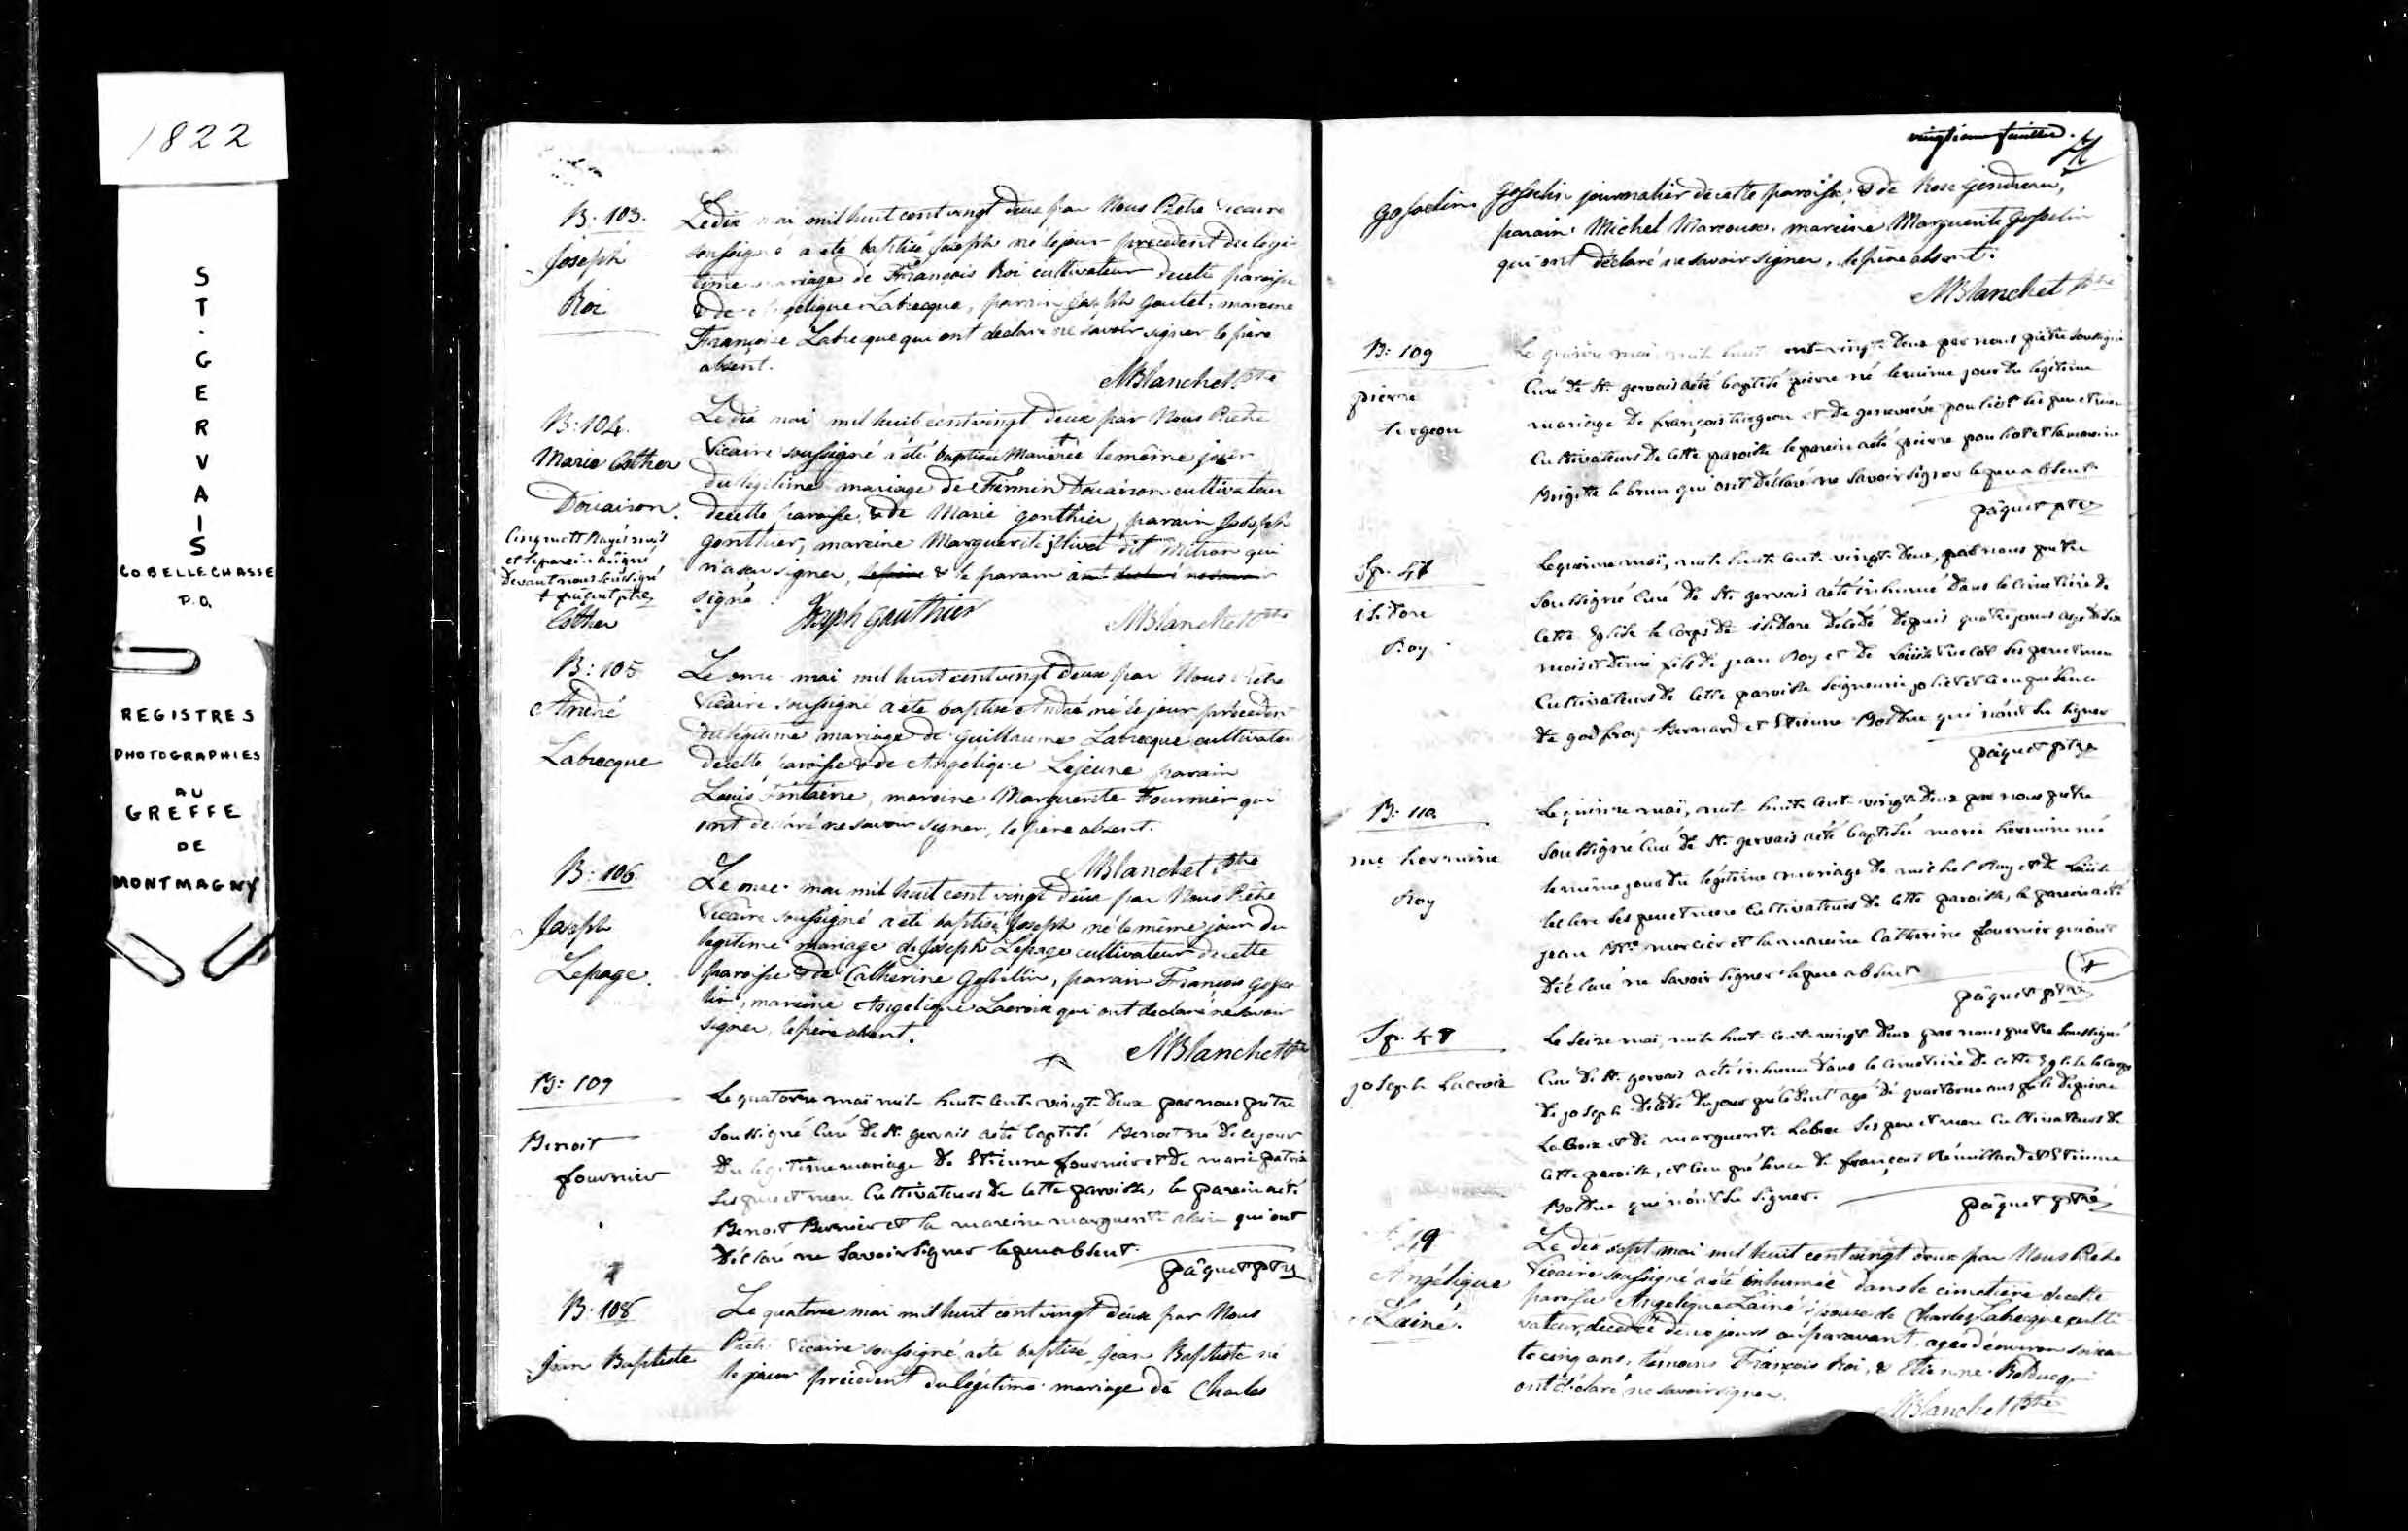 1822
ST. GERVAIS
CO BELLECHASSE
P.Q.
REGISTRES
PHOTOGRAPHIES
AU
GREFFE
DE
MONTMAGNY
B. 103.
Joseph
Roi
Le dix mai mil huit cent vingt deux par Nous Prêtre Vicaire
soussigné a été baptisé Joseph né le jour précédent du legi-
time mariage de François Roi cultivateur de cette paroisse
& de Angelique Labrecque, parain Joseph Goulet, maraine
Françoise Labrecque qui ont déclaré ne savoir signer le père
absent.
MBlanchet Ptre
B: 104.
Marie Esther
Douaison.
Cinq mots rayés nuls
et le parein a signé
devant nous soussigné
+ pâquet ptre
Esther
Le dix mai mil huit cent vingt deux par Nous Prêtre
Vicaire soussigné a été baptisée Marie + née le même jour
du légitime mariage de Firmin Douaison cultivateur
de cette paroisse & de Marie Gonthier, parain Joseph
Gonthier, maraine Marguerite dit Mition qui
n'a su signer, le père & le parain ont declaré ne savoir
signé.
Joseph Gauthier
MBlanchet Ptre
B: 105
André
Labrecque
Le onze mai mil huit cent vingt deux par Nous Prêtre
Vicaire soussigné a été baptisé André né le jour précédent
du légitime mariage de Guillaume Labrecque cultivateur
de cette paroisse & de Angelique Lejeune parain
Louis Fontaine, maraine Marguerite Fournier qui
ont declaré ne savoir signer, le père absent.
MBlanchet Ptre
B: 106
Joseph
Lepage.
Le onze mai mil huit cent vingt deux par Nous Prêtre
Vicaire soussigné a été baptisé Joseph né le même jour du
legitime mariage de Joseph Lepage cultivateur de cette
paroisse & de Catherine Gosselin, parain François Gosse-
lin, maraine Angelique Lacroix qui ont declaré ne savoir
signer, le père absent.
MBlanchet Ptre
B: 107
Benoit
fournier
Le quatorze mai mil huit cent vingt deux par nous prêtre
soussigné Curé de St. gervais a été baptisé Benoit né de ce jour
du legitime mariage de Etienne fournier et de marie patris
ses pere et mere Cultivateurs de cette paroisse, le parein a été
Benoit Bernier et la mareine marguerite qui ont
déclaré ne savoir signer le pere absent.
pâquet ptre
B. 108
Jean Baptiste
Le quatorze mai mil huit cent vingt deux par Nous
Prêtre Vicaire soussigné a été baptisé Jean Baptiste né
le jour précédent du légitime mariage de Charles
vingtieme feuillet.
Gosselin
Gosselin journalier de cette paroisse & de Rose Gendreau,
parain Michel Marcoux, maraine Marguerite Gosselin
qui ont déclaré ne savoir signer, le père absent.
MBlanchet Ptre
B: 109
pierre
turgeon
Le quinze mai mil huit cent vingt deux par nous prêtre soussigné
Curé de St. gervais a été baptisé pierre né le même jour du légitime
mariage de françois turgeon et de genevieve pouliot ses pere et mere
Cultivateurs de cette paroisse le parein a été pierre pouliot et la mareine
Brigitte le brun qui ont déclaré ne savoir signer le pere absent.
pâquet ptre
Sp. 47
isidore
Roy
Le quinze mai, mil huit cent vingt deux, par nous prêtre
soussigné Curé de St. gervais a été inhumé dans le Cimetière de
cette Eglise le Corps de isidore décédé depuis quatre jours agé de six
mois et demi fils de jean Roy et de Louise ses pere et mere
Cultivateurs de cette paroisse seigneurie joliet et ce en présence
de godfroy Bernard et Etienne Bolduc qui n'ont su signer
pâquet ptre
B: 110.
me hermine
Roy
Le quinze mai, mil huit cent vingt deux par nous prêtre
soussigné Curé de St. gervais a été baptisée marie hermine née
le même jour du légitime mariage de michel Roy et de Louise
leclere ses pere et mere Cultivateurs de cette paroisse, le parein a été
jean Bte mercier et la mareine Catherine fournier qui ont
déclaré ne savoir signer le pere absent
pâquet ptre
Sp. 48
joseph Lacroix
Le seize mai, mil huit cent vingt deux par nous prêtre soussigné
Curé de St. gervais a été inhumé dans le Cimetière de cette Eglise le Corps
de joseph décédé du jour précédent agé de quatorze ans fils de pierre
LaCroix et de marguerite ses pere et mere Cultivateurs de
cette paroisse, et ce en présence de françois et Etienne
Bolduc qui n'ont su signer.
pâquet ptre
49
Angélique
Lainé.
Le dix sept mai mil huit cent vingt deux par Nous Prêtre
Vicaire soussigné a été inhumée dans le cimetière de cette
paroisse Angelique Lainé épouse de Charles Labrecque culti-
vateur, décédée deux jours auparavant, agée d'environ soixan-
te cinq ans, témoins François Roi, & Etienne Bolduc qui
ont déclaré ne savoir signer.
MBlanchet Ptre